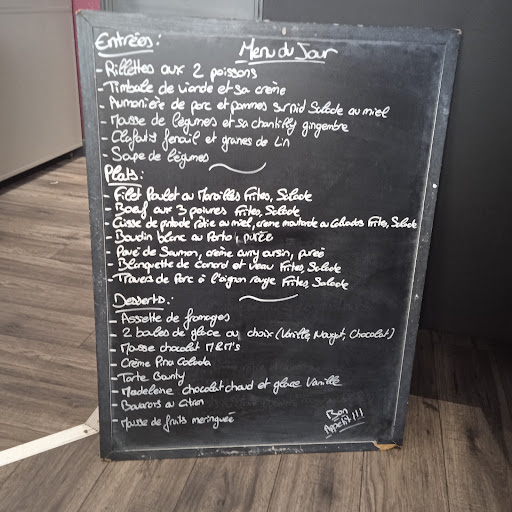 Entrées :
Menu du Jour
- Rillettes aux 2 poissons
- Timbale de viande et sa crème
- Aumonière de porc et pommes sur nid Salade au miel
- Mousse de légumes et sa chantilly gingembre
- Clafoutis fenouil et graines de Lin
- Soupe de légumes
Plats :
- Filet Poulet au Maroilles Frites, Salade
- Boeuf aux 3 poivres Frites, Salade
- Cuisse de pintade rôtie au miel, creme moutarde au Calvados Frites, Salade
- Boudin blanc au Porto, purée
- Pavé de Saumon, crème curry oursin, purée
- Blanquette de Canard et veau Frites, Salade
- Travers de Porc à l'oignon rouge Frites, Salade
Desserts :
- Assiette de fromages
- 2 boules de glace au choix (Vanille, Nougat, Chocolat)
- Mousse chocolat M&M's
- Crème Pina Colada
- Tarte Bounty
- Madeleine chocolat chaud et glace Vanille
- Bavarois au Citron
- Mousse de fruits meringuée
Bon
Appétit !!!